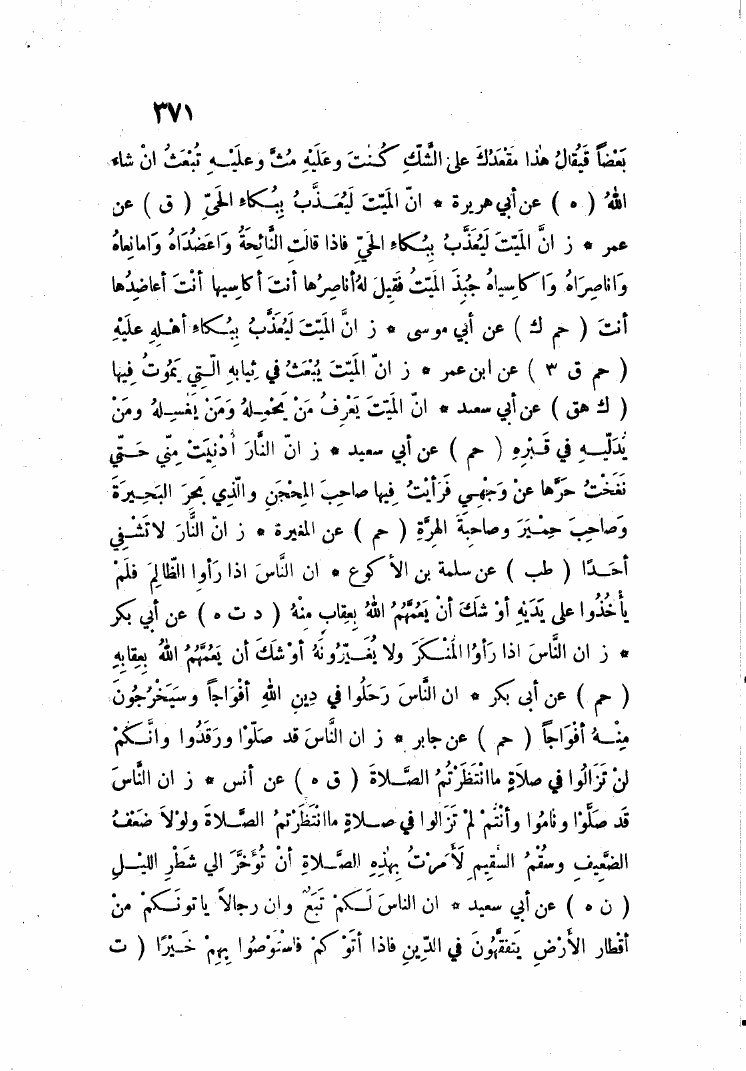 ٣٧١
بَعْضاً فَيُقَالُ هٰذَا مَقْعَدُكَ عَلَى الشَّكِّ كُنْتَ وعَلَيْهِ مُتَّ وعلَيْهِ تُبْعَثُ انْ شاءَ
اللهُ ( ه ) عن أبي هريرة * انّ المَيِّتَ لَيُعَذَّبُ بِبُكاءِ الحَيِّ ( ق ) عن
عمر * ز انَّ المَيِّتَ لَيُعَذَّبُ بِبُكاءِ الحَيِّ فاذا قالَتِ النَّائِحَةُ وَاعَضُدَاهُ وَامانِعاهُ
وَاناصِرَاهُ وَاكاسِياهُ جُبِذَ المَيِّتُ فَقِيلَ لهُ أناصِرُها أنتَ أكاسِيها أنْتَ أعاضِدُها
أنتَ ( حم ك ) عن أبي موسى * ز انَّ المَيِّتَ لَيُعَذَّبُ بِبُكاءِ أهْلِهِ علَيْهِ
( حم ق ٣ ) عن ابن عمر * ز انّ المَيِّتَ يُبْعَثُ في ثِيابِهِ الّتِي يَمُوتُ فِيها
( ك هق ) عن أبي سعيد * انّ المَيِّتَ يَعْرِفُ مَنْ يَحْمِلهُ وَمَنْ يَغْسِلهُ ومَنْ
يُدَلِّيهِ في قَبْرِهِ ( حم ) عن أبي سعيد * ز انّ النَّارَ أُدْنِيَتْ مِنّي حَتّي
نَفَخْتُ حَرَّها عنْ وَجْهِي فَرَأيْتُ فِيها صاحِبَ المِحْجَنِ والّذِي بَحَرَ البَحِيرَةَ
وَصَاحِبَ حِمْيَرَ وصاحِبَةَ الهِرَّةِ ( حم ) عن المغيرة * ز انّ النَّارَ لاتَشْفِي
أحَدًا ( طب ) عن سلمة بن الأكوع * ان النَّاسَ اذا رَأوا الظّالِمَ فلَمْ
يأخُذُوا على يَدَيْهِ أوْ شَكَ أنْ يَعُمَّهُمُ اللهُ بِعِقابٍ مِنْهُ ( د ت ه ) عن أبي بكر
* ز ان النَّاسَ اذا رَأوُا المُنْكَرَ ولا يُغَيِّرُونَهُ أوْ شَكَ أن يَعُمَّهُمُ اللهُ بِعِقابِهِ
( حم ) عن أبى بكر * ان النَّاسَ رَحَلُوا في دِينِ اللهِ أفْوَاجاً وسَيَخْرُجُونَ
مِنْهُ أفْوَاجاً ( حم ) عن جابر * ز ان النَّاسَ قد صَلّوْا ورَقَدُوا وانَّكُمْ
لنْ تَزَالُوا في صلاةٍ ماانْتَظَرْتُمُ الصَّلاةَ ( ق ه ) عن أنس * ز ان النَّاسَ
قد صَلَّوْا ونامُوا وأنْتُمْ لمْ تَزَالوا في صلاةٍ ماانْتَظَرْتمُ الصَّلاةَ ولَوْلاَ ضَعْفُ
الضَّعِيفِ وسُقْمُ السَّقِيمِ لَأمَرْتُ بِهٰذِهِ الصَّلاةِ أنْ تُؤَخَّرَ الي شَطْرِ الليْلِ
( ن ه ) عن أبي سعيد * ان الناسَ لَكُمْ تَبَعٌ وان رجالاً ياتونَكُمْ منْ
أقْطارِ الأرْضِ يَتَفَقَّهُونَ في الدِّينِ فاذا أتَوْ كُمْ فاسْتَوْصُوا بِهِمْ خَيْرًا ( ت